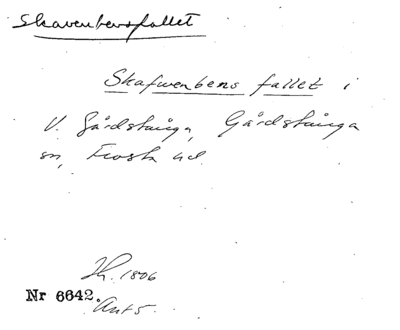 Skavenbensfallet
Skafwenbens fallet i
V. Gårdstånga, Gårdstånga
sn, Frosta hd.
Jh. 1806
Nr 6642.
Ant 5.